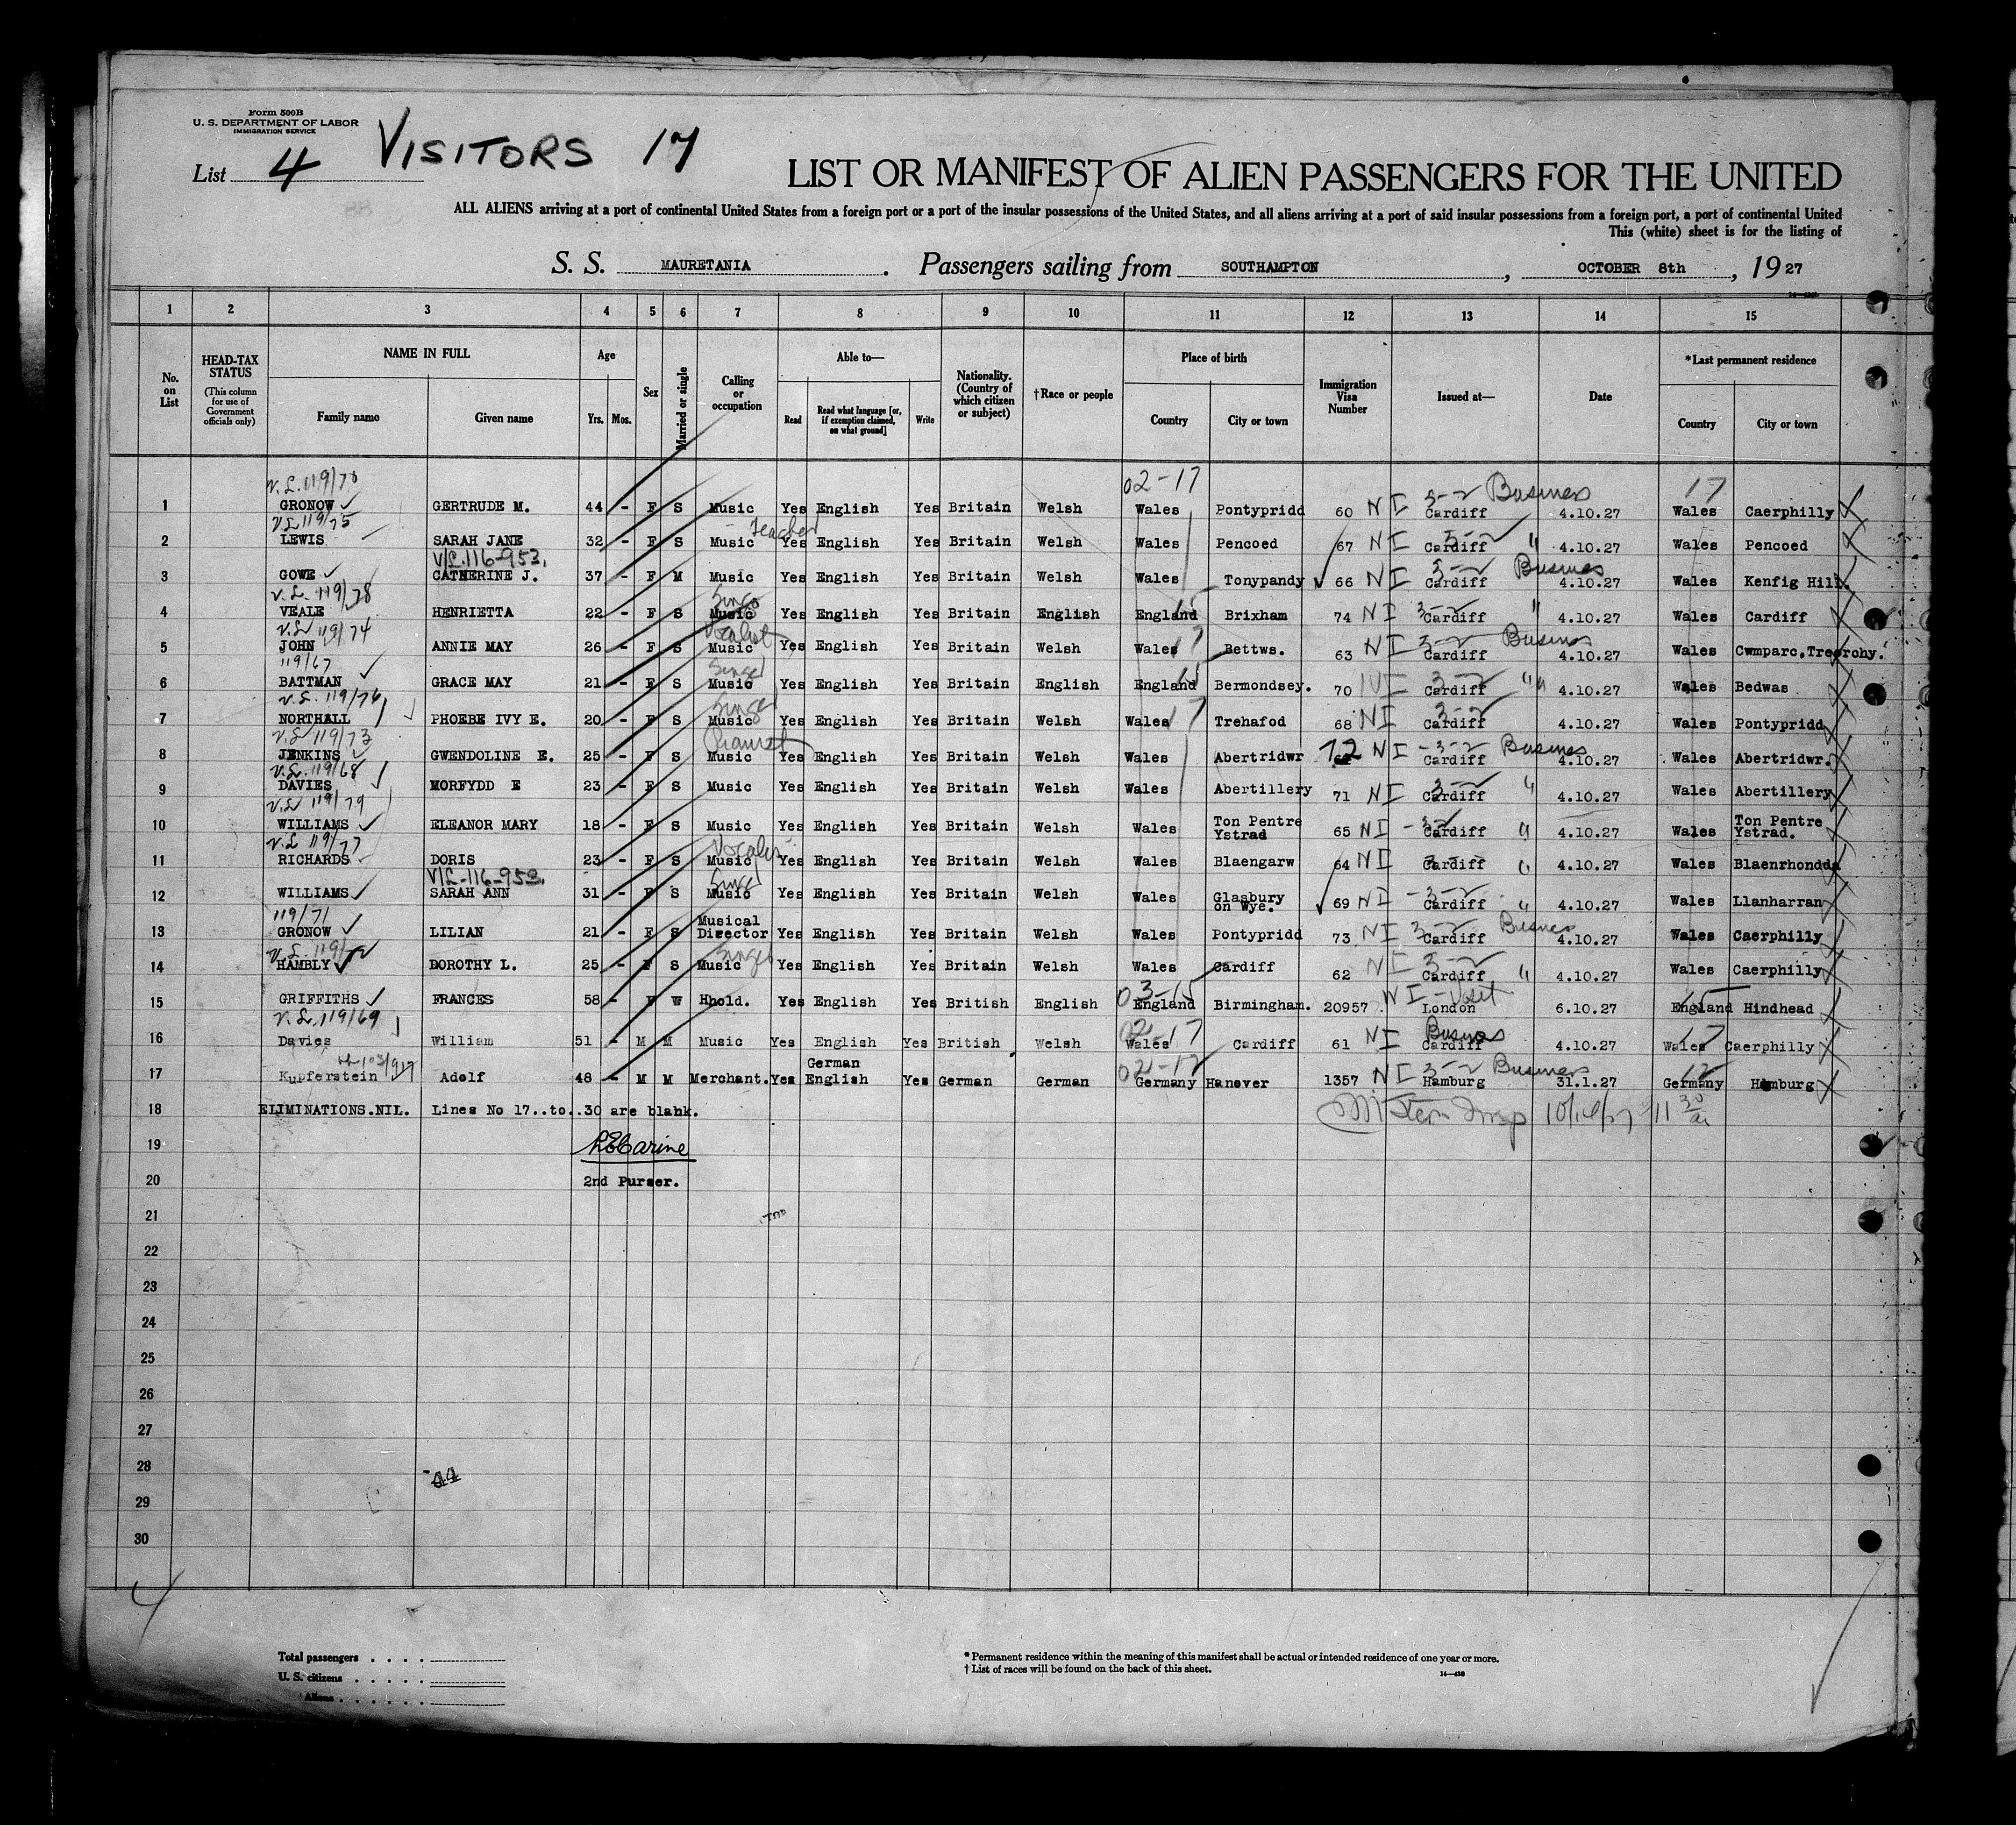 Form 500B
U. S. DEPARTMENT OF LABOR
IMMIGRATION SERVICE
List 4 VISITORS 17
LIST OR MANIFEST OF ALIEN PASSENGERS FOR THE UNITED
ALL ALIENS arriving at a port of continental United States from a foreign port or a port of the insular possessions of the United States, and all aliens arriving at a port of said insular possessions from a foreign port, a port of continental United
This (white) sheet is for the listing of
S. S. MAURETANIA. Passengers sailing from SOUTHAMPTON, OCTOBER 8th, 19 27
1 2 3 4 5 6 7 8 9 10 11 12 13 14 15
No. on List
HEAD-TAX STATUS (This column for use of Government officials only)
NAME IN FULL Family name Given name
Age Yrs. Mos.
Sex
Married or single
Calling or occupation
Able to— Read Read what language [or, if exemption claimed, on what ground] Write
Nationality. (Country of which citizen or subject)
†Race or people
Place of birth Country City or town
Immigration Visa Number
Issued at—
Date
*Last permanent residence Country City or town
V.L. 119/70 02-17 17
1 GRONOW GERTRUDE M. 44 - F S Music Yes English Yes Britain Welsh Wales Pontypridd 60 NI 3-2 Business Cardiff 4.10.27 Wales Caerphilly
V.L 119/75 Teacher
2 LEWIS SARAH JANE 32 - F S Music Yes English Yes Britain Welsh Wales Pencoed 67 NI 3-2 " Cardiff 4.10.27 Wales Pencoed
V/L.116-953.
3 GOWE CATHERINE J. 37 - F M Music Yes English Yes Britain Welsh Wales Tonypandy 66 NI 3-2 Business Cardiff 4.10.27 Wales Kenfig Hill.
V.L. 119/78
4 VEALE HENRIETTA 22 - F S Music Yes English Yes Britain English England 15 Brixham 74 NI 3-2 " Cardiff 4.10.27 Wales Cardiff
V.L 119/74 Vocalist
5 JOHN ANNIE MAY 26 - F S Music Yes English Yes Britain Welsh Wales 17 Bettws. 63 NI 3-2 Business Cardiff 4.10.27 Wales Cwmparc,Treorchy.
119/67 Singer
6 BATTMAN GRACE MAY 21 - F S Music Yes English Yes Britain English England 15 Bermondsey. 70 NI 3-2 " Cardiff 4.10.27 Wales Bedwas
V.L. 119/76 Singer
7 NORTHALL PHOEBE IVY E. 20 - F S Music Yes English Yes Britain Welsh Wales 17 Trehafod 68 NI 3-2 Cardiff 4.10.27 Wales Pontypridd
V.L 119/73 Pianist
8 JENKINS GWENDOLINE E. 25 - F S Music Yes English Yes Britain Welsh Wales Abertridwr 72 NI -3-2 Business Cardiff 4.10.27 Wales Abertridwr.
V.L. 119/68
9 DAVIES MORFYDD E 23 - F S Music Yes English Yes Britain Welsh Wales Abertillery 71 NI 3-2 " Cardiff 4.10.27 Wales Abertillery
V.L 119/79
10 WILLIAMS ELEANOR MARY 18 - F S Music Yes English Yes Britain Welsh Wales Ton Pentre Ystrad 65 NI -3-2 " Cardiff 4.10.27 Wales Ton Pentre Ystrad.
V.L 119/77 Vocalist
11 RICHARDS DORIS 23 - F S Music Yes English Yes Britain Welsh Wales Blaengarw 64 NI 3-2 " Cardiff 4.10.27 Wales Blaenrhondda
V/L-116-953. Singer
12 WILLIAMS SARAH ANN 31 - F S Music Yes English Yes Britain Welsh Wales Glasbury on Wye. 69 NI -3-2 " Cardiff 4.10.27 Wales Llanharran
119/71
13 GRONOW LILIAN 21 - F S Musical Director Yes English Yes Britain Welsh Wales Pontypridd 73 NI 3-2 Business Cardiff 4.10.27 Wales Caerphilly
V.L. 119/72 Singer
14 HAMBLY DOROTHY L. 25 - F S Music Yes English Yes Britain Welsh Wales Cardiff 62 NI 3-2 " Cardiff 4.10.27 Wales Caerphilly
03-15 15
15 GRIFFITHS FRANCES 58 - F W Hhold. Yes English Yes British English England Birmingham. 20957 NI -Visit London 6.10.27 England Hindhead
V.L. 119/69 02-17 17
16 Davies William 51 - M M Music Yes English Yes British Welsh Wales Cardiff 61 NI Business Cardiff 4.10.27 Wales Caerphilly
German 02-12 12
17 Kupferstein Adolf 48 - M M Merchant. Yes English Yes German German Germany Hanover 1357 NI 3-2 Business Hamburg 31.1.27 Germany Hamburg
18 ELIMINATIONS.NIL. Lines No 17..to..30 are blank.
19
20 2nd Purser.
21
22
23
24
25
26
27
28 44
29
30
4
Total passengers
U. S. citizens
Aliens
* Permanent residence within the meaning of this manifest shall be actual or intended residence of one year or more.
† List of races will be found on the back of this sheet.
14—430